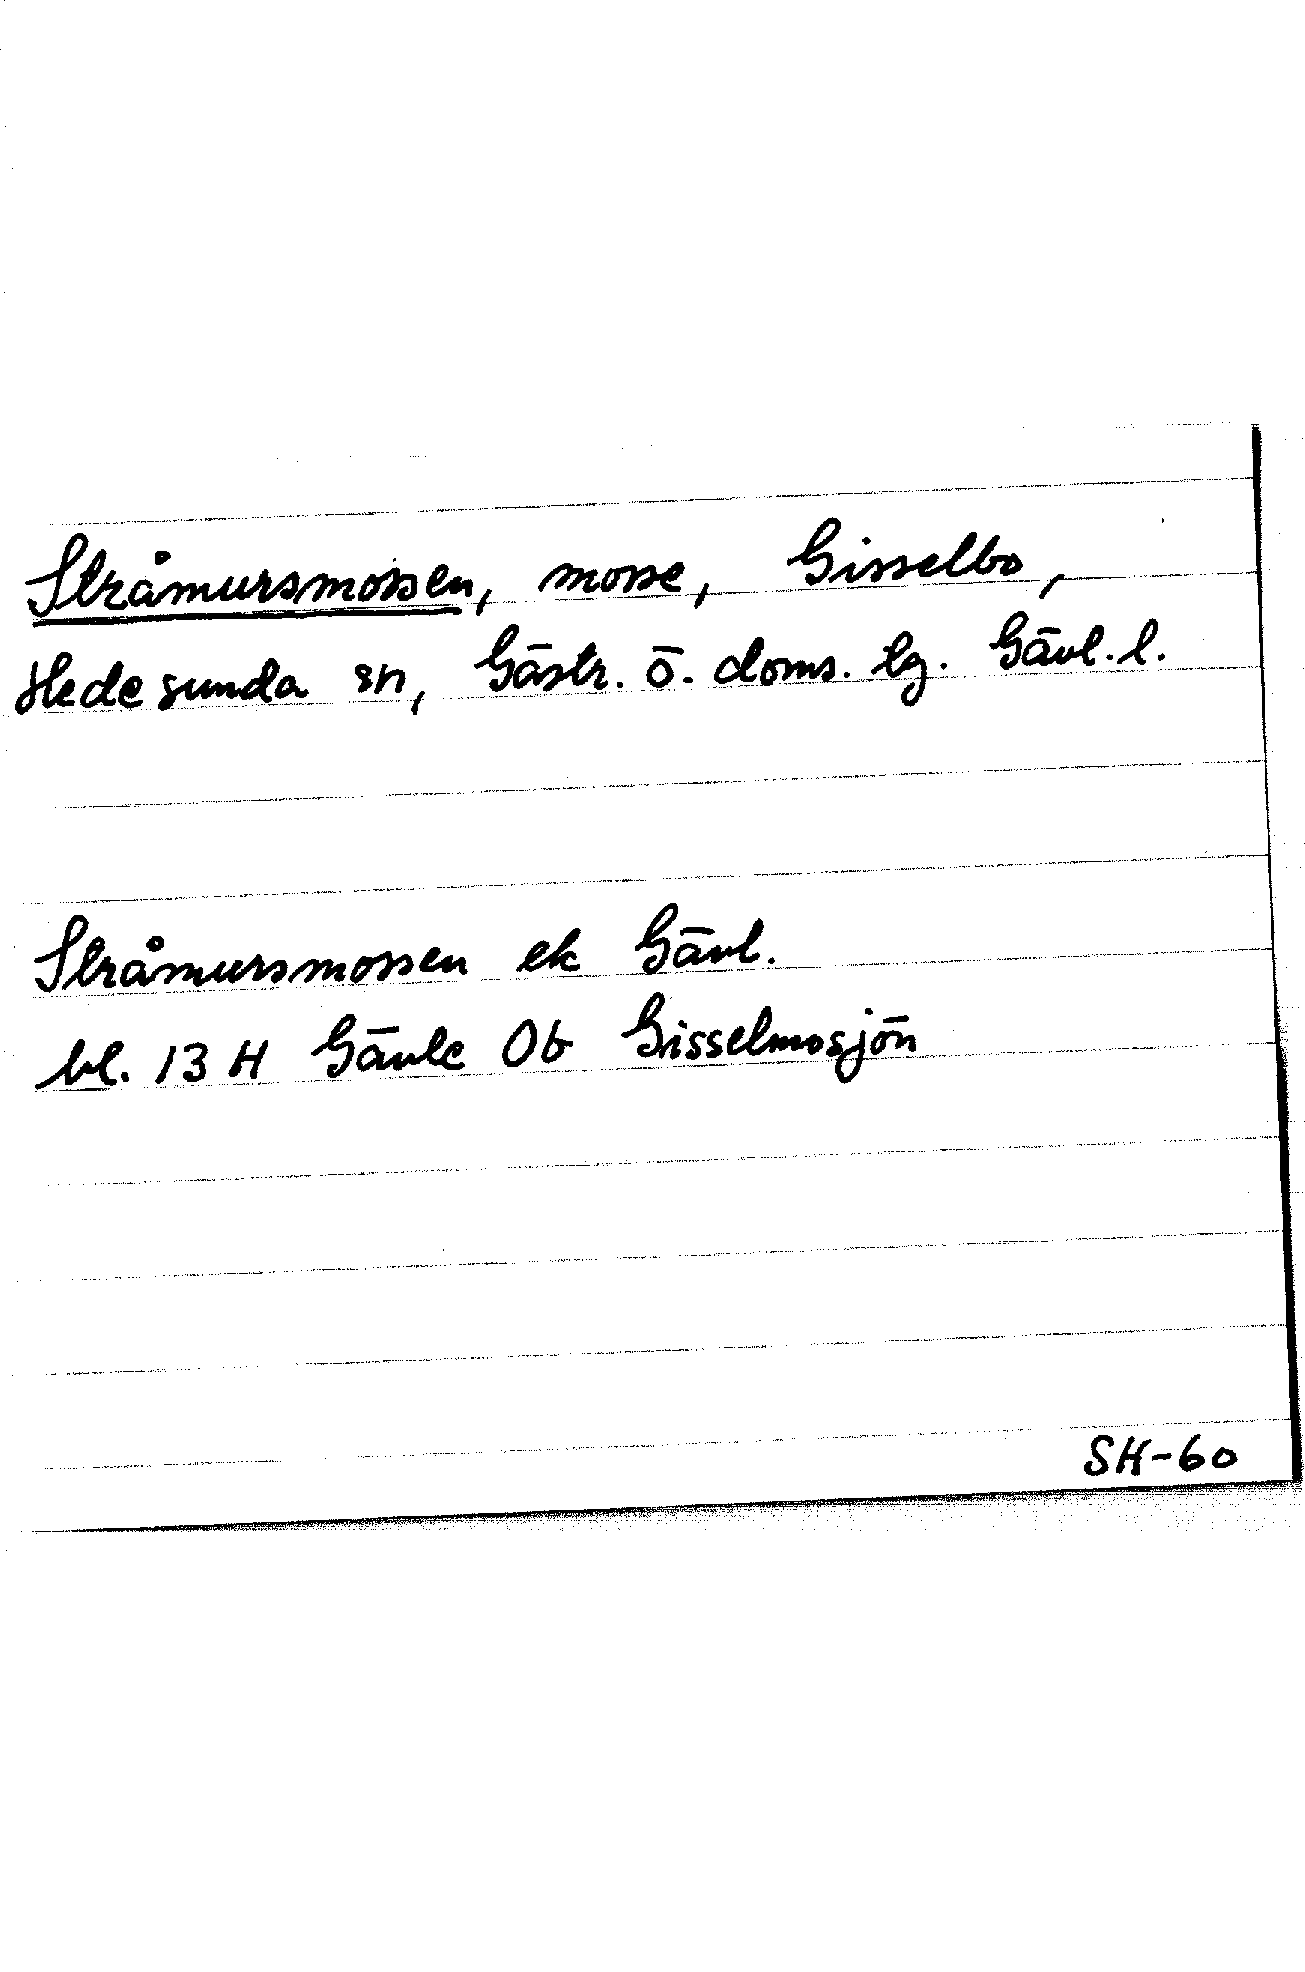 Stråmursmossen, mosse, Gisselbo,
Hedesunda sn, Gästr. ö. doms. tg. Gävl. l.
Stråmursmossen ek Gävl.
bl. 13 H Gävle 0b Gisselmosjön
SH-60